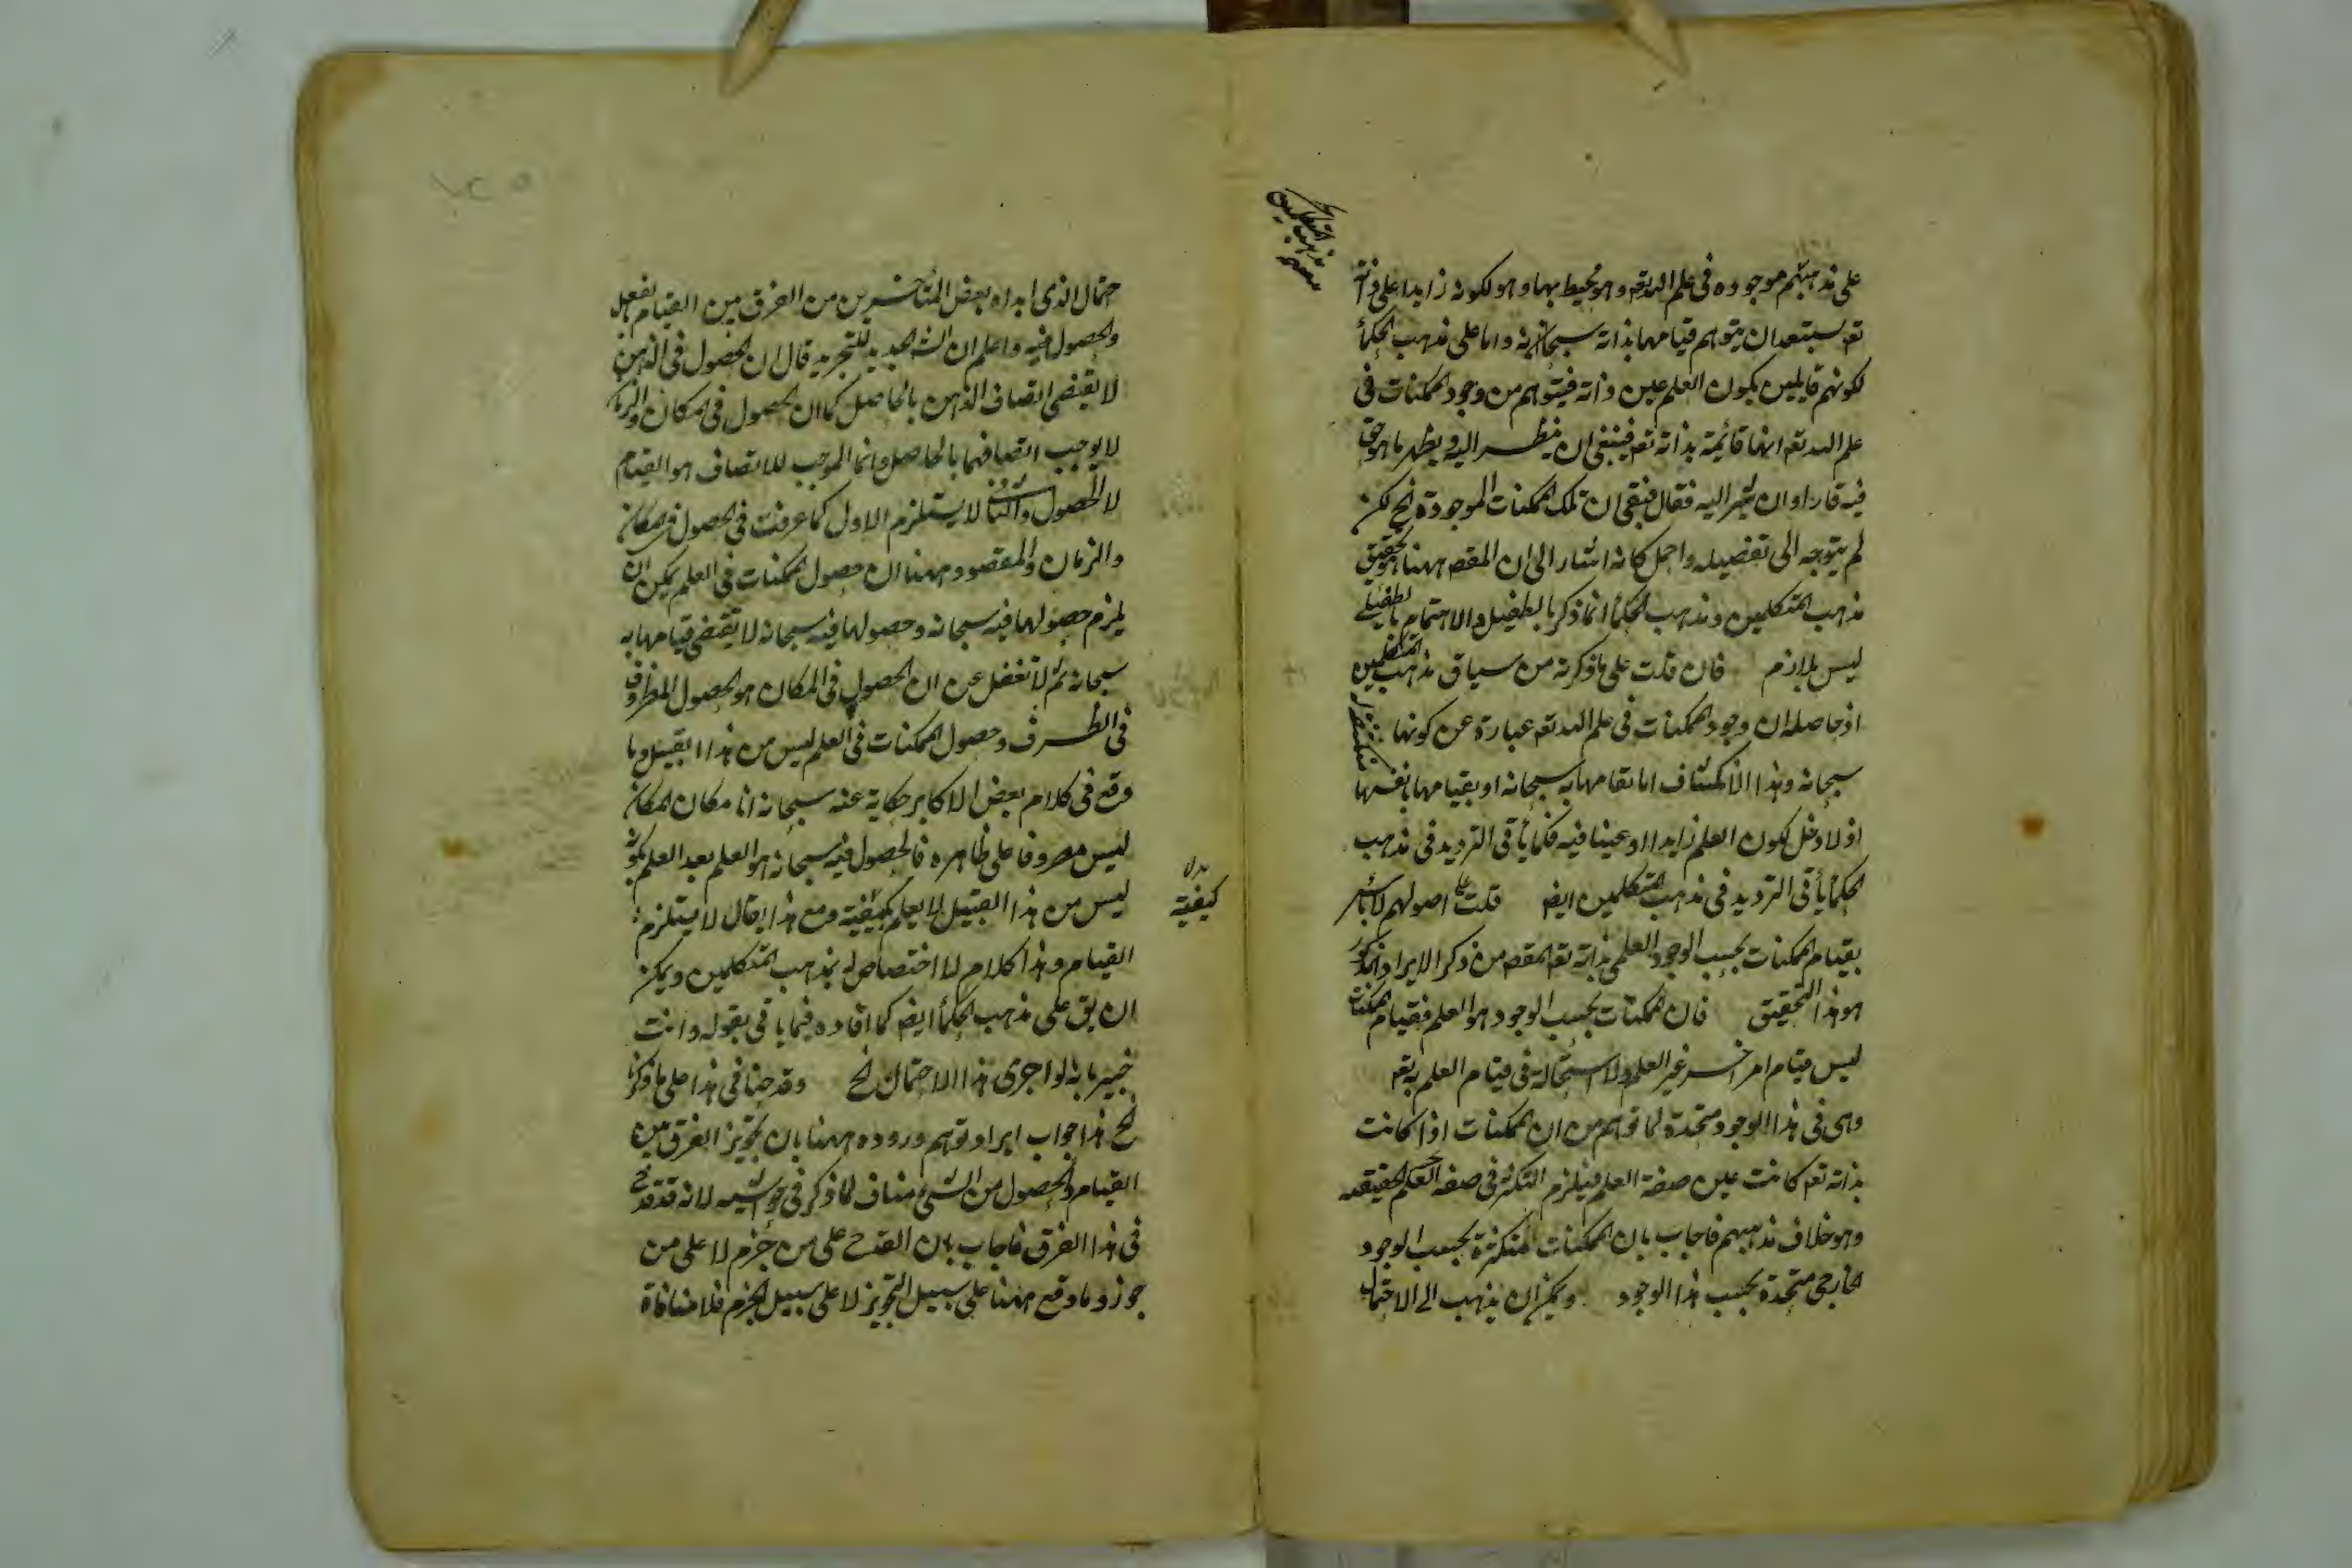 على مذهبهم موجودة فى علم الله تعه وهو محيط بها وهو لكونه زايدا على ذاته
تعه يستبعد ان يتوهم قيامها بذاته سبحانه واما على مذهب الحكمأ
لكونهم قايلين بكون العلم عين ذاته فيتوهم من وجود الممكنات فى
علم الله تعه انها قائمة بذاته تعه فينبغى ان ينظر اليه ويظهر ما هو حق
فيه فاراد ان يشير اليه فقال فبقى ان تلك الممكنات الموجودة الخ لكن
لم يتوجه الى تفصيله واجمل كانه اشار الى ان المقصـ ههنا هو تحقيق
مذهب المتكلمين ومذهب الحكمأ انما ذكر بالطفيل والاهتمام بالطفيلى
ليس بلازم فان قلت على ما ذكرته من سياق مذهب المتكلمين
اذ حاصله ان وجود الممكنات فى علم الله تعه عبارة عن كونها منكشفة له
سبحانه وهذا الانكشاف اما بقيامها به سبحانه او بقيامها بانفسها
اذ لا دخل لكون العلم زايدا او عينا فيه فكما يأتى الترديد فى مذهب
الحكمأ يأتى الترديد فى مذهب المتكلمين ايضـ قلت على اصولهم لا بأس
بقيام الممكنات بحسب الوجود العلمى بذاته تعه المقصـ من ذكر الايراد المذكور
هو هذا التحقيق فان الممكنات بحسب الوجود هو العلم فقيام الممكنات
ليس قيام امر اخر غير العلم ولا استحالة فى قيام العلم به تعه
وهى فى هذا الوجود متحدة لما توهم من ان الممكنات اذا كانت
بذاته تعه كانت عين صفة العلم فيلزم التكثر فى صفة العلم الحقيقيه
وهو خلاف مذهبهم فاجاب بان الممكنات متكثرة بحسب الوجود
الخارجى متحدة بحسب هذا الوجود ويمكن ان يذهب الى الاحتمال
حتمال الذى ابداه بعض المتأخرين من الفرق بين القيام بالعقل
والحصول فيه واعلم ان الشـ الجديد للتجريد قال ان الحصول فى الذهن
لا يقتضى اتصاف الذهن بالحاصل كما ان الحصول فى المكان والزمان
لا يوجب اتصافهما بالحاصل وانما الموجب للاتصاف هو القيام
لا الحصول والثانى لا يستلزم الاول كما عرفت فى الحصول فى المكان
والزمان والمقصود ههنا ان حصول الممكنات فى العلم يمكن ان
يلزم حصولها فيه سبحانه وحصولها فيه سبحانه لا يقتضى قيامها به
سبحانه ثم لا تغفل عن ان الحصول فى المكان هو الحصول المظروف
فى الظرف وحصول الممكنات فى العلم ليس من هذا القبيل وما
وقع فى كلام بعض الاكابر حكاية عنه سبحانه انا مكان المكان
ليس مصروفا على ظاهره فالحصول فيه سبحانه هو العلم بعد العلم بكونه
ليس من هذا القبيل لا يعلم كيفيته ومع هذا يقال لا يستلزم
كيفيته
القيام وهذا كلام لا اختصاص له بمذهب المتكلمين ويمكن
ان يق على مذهب الحكمأ ايضـ كما افاده فيما ياتى بقوله وانت
خبير بانه لو اجرى هذا الاحتمال الخ وقد جرينا فى هذا على ما ذكرنا
الخ هذا جواب ايراد توهم وروده ههنا بان تجويز الفرق بين
القيام والحصول من الشئ مناف لما ذكر فى حواشيه لانه قد قدح
فى هذا الفرق فاجاب بان القدح على من جزم لا على من
جوز وما وقع ههنا على سبيل التجويز لا على سبيل الجزم فلا منافاة